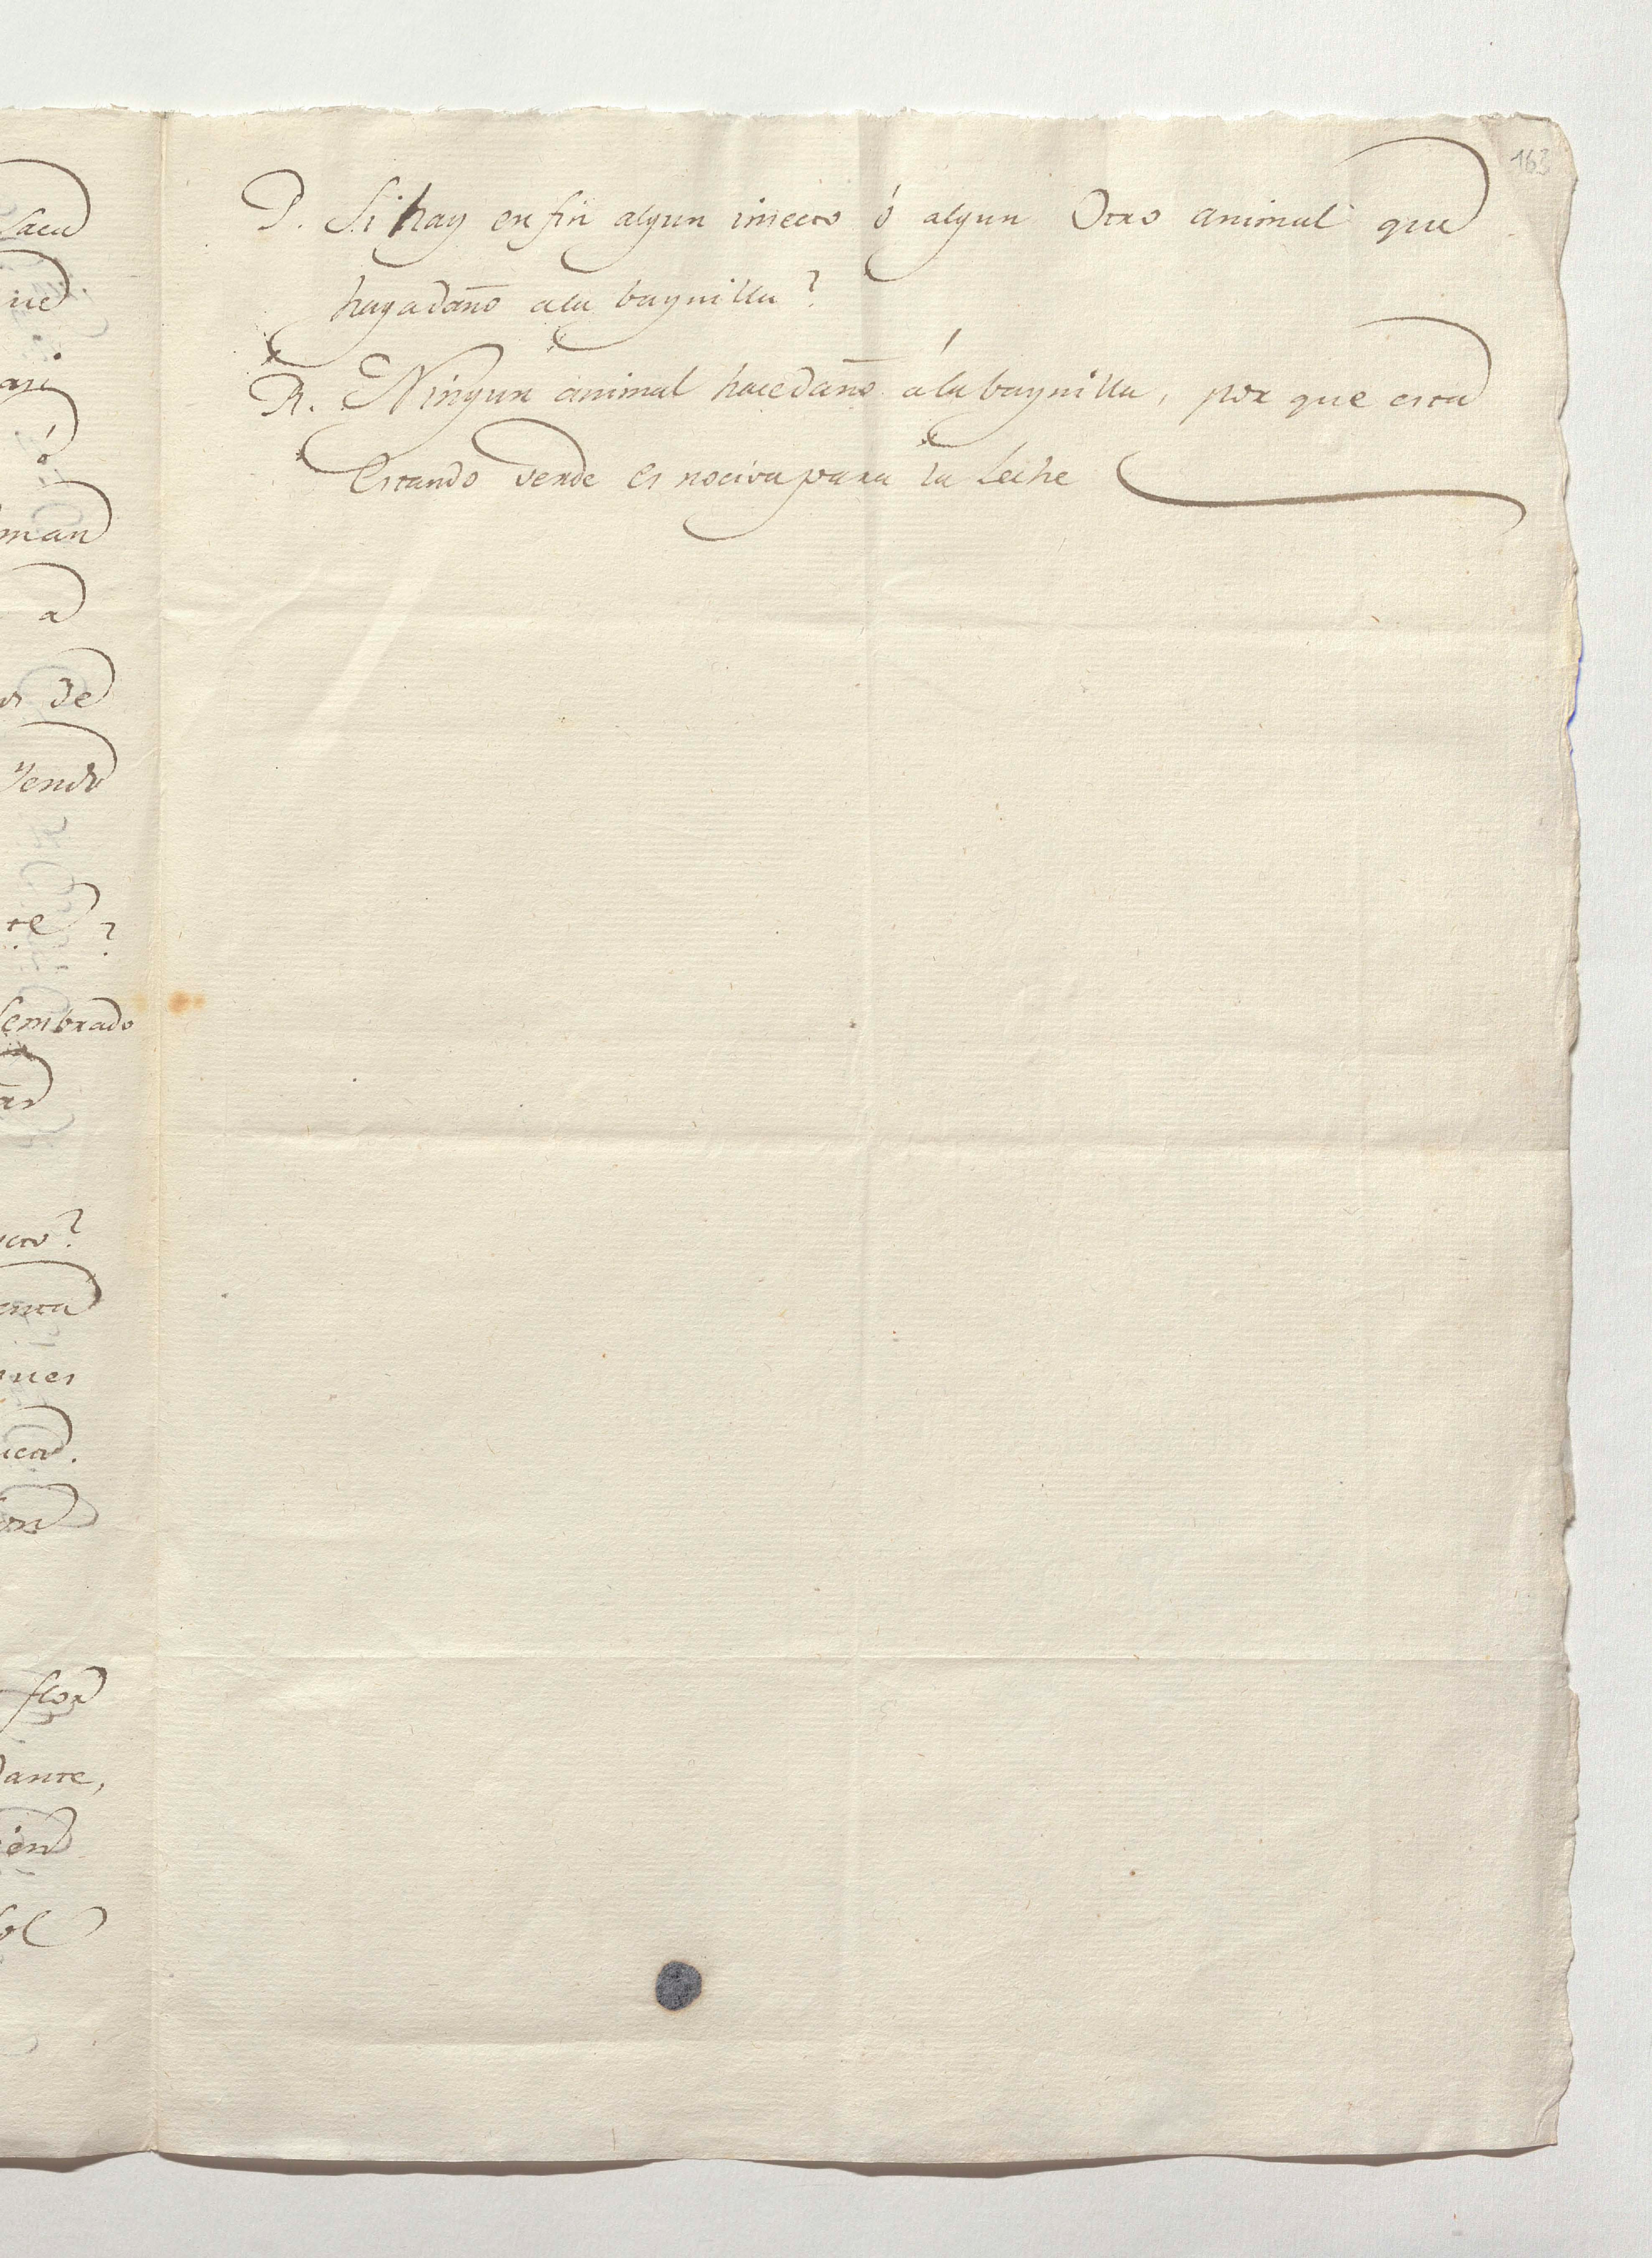 163
P. Si hay en fin algun insecto ó algun Otro animal que
haga daño a la baynilla?
R. Ningun animal hace daño á la baynilla, por que esta
Estando verde es nociva para la Leche
Saca
ó
a
de
?
sembrado
flor